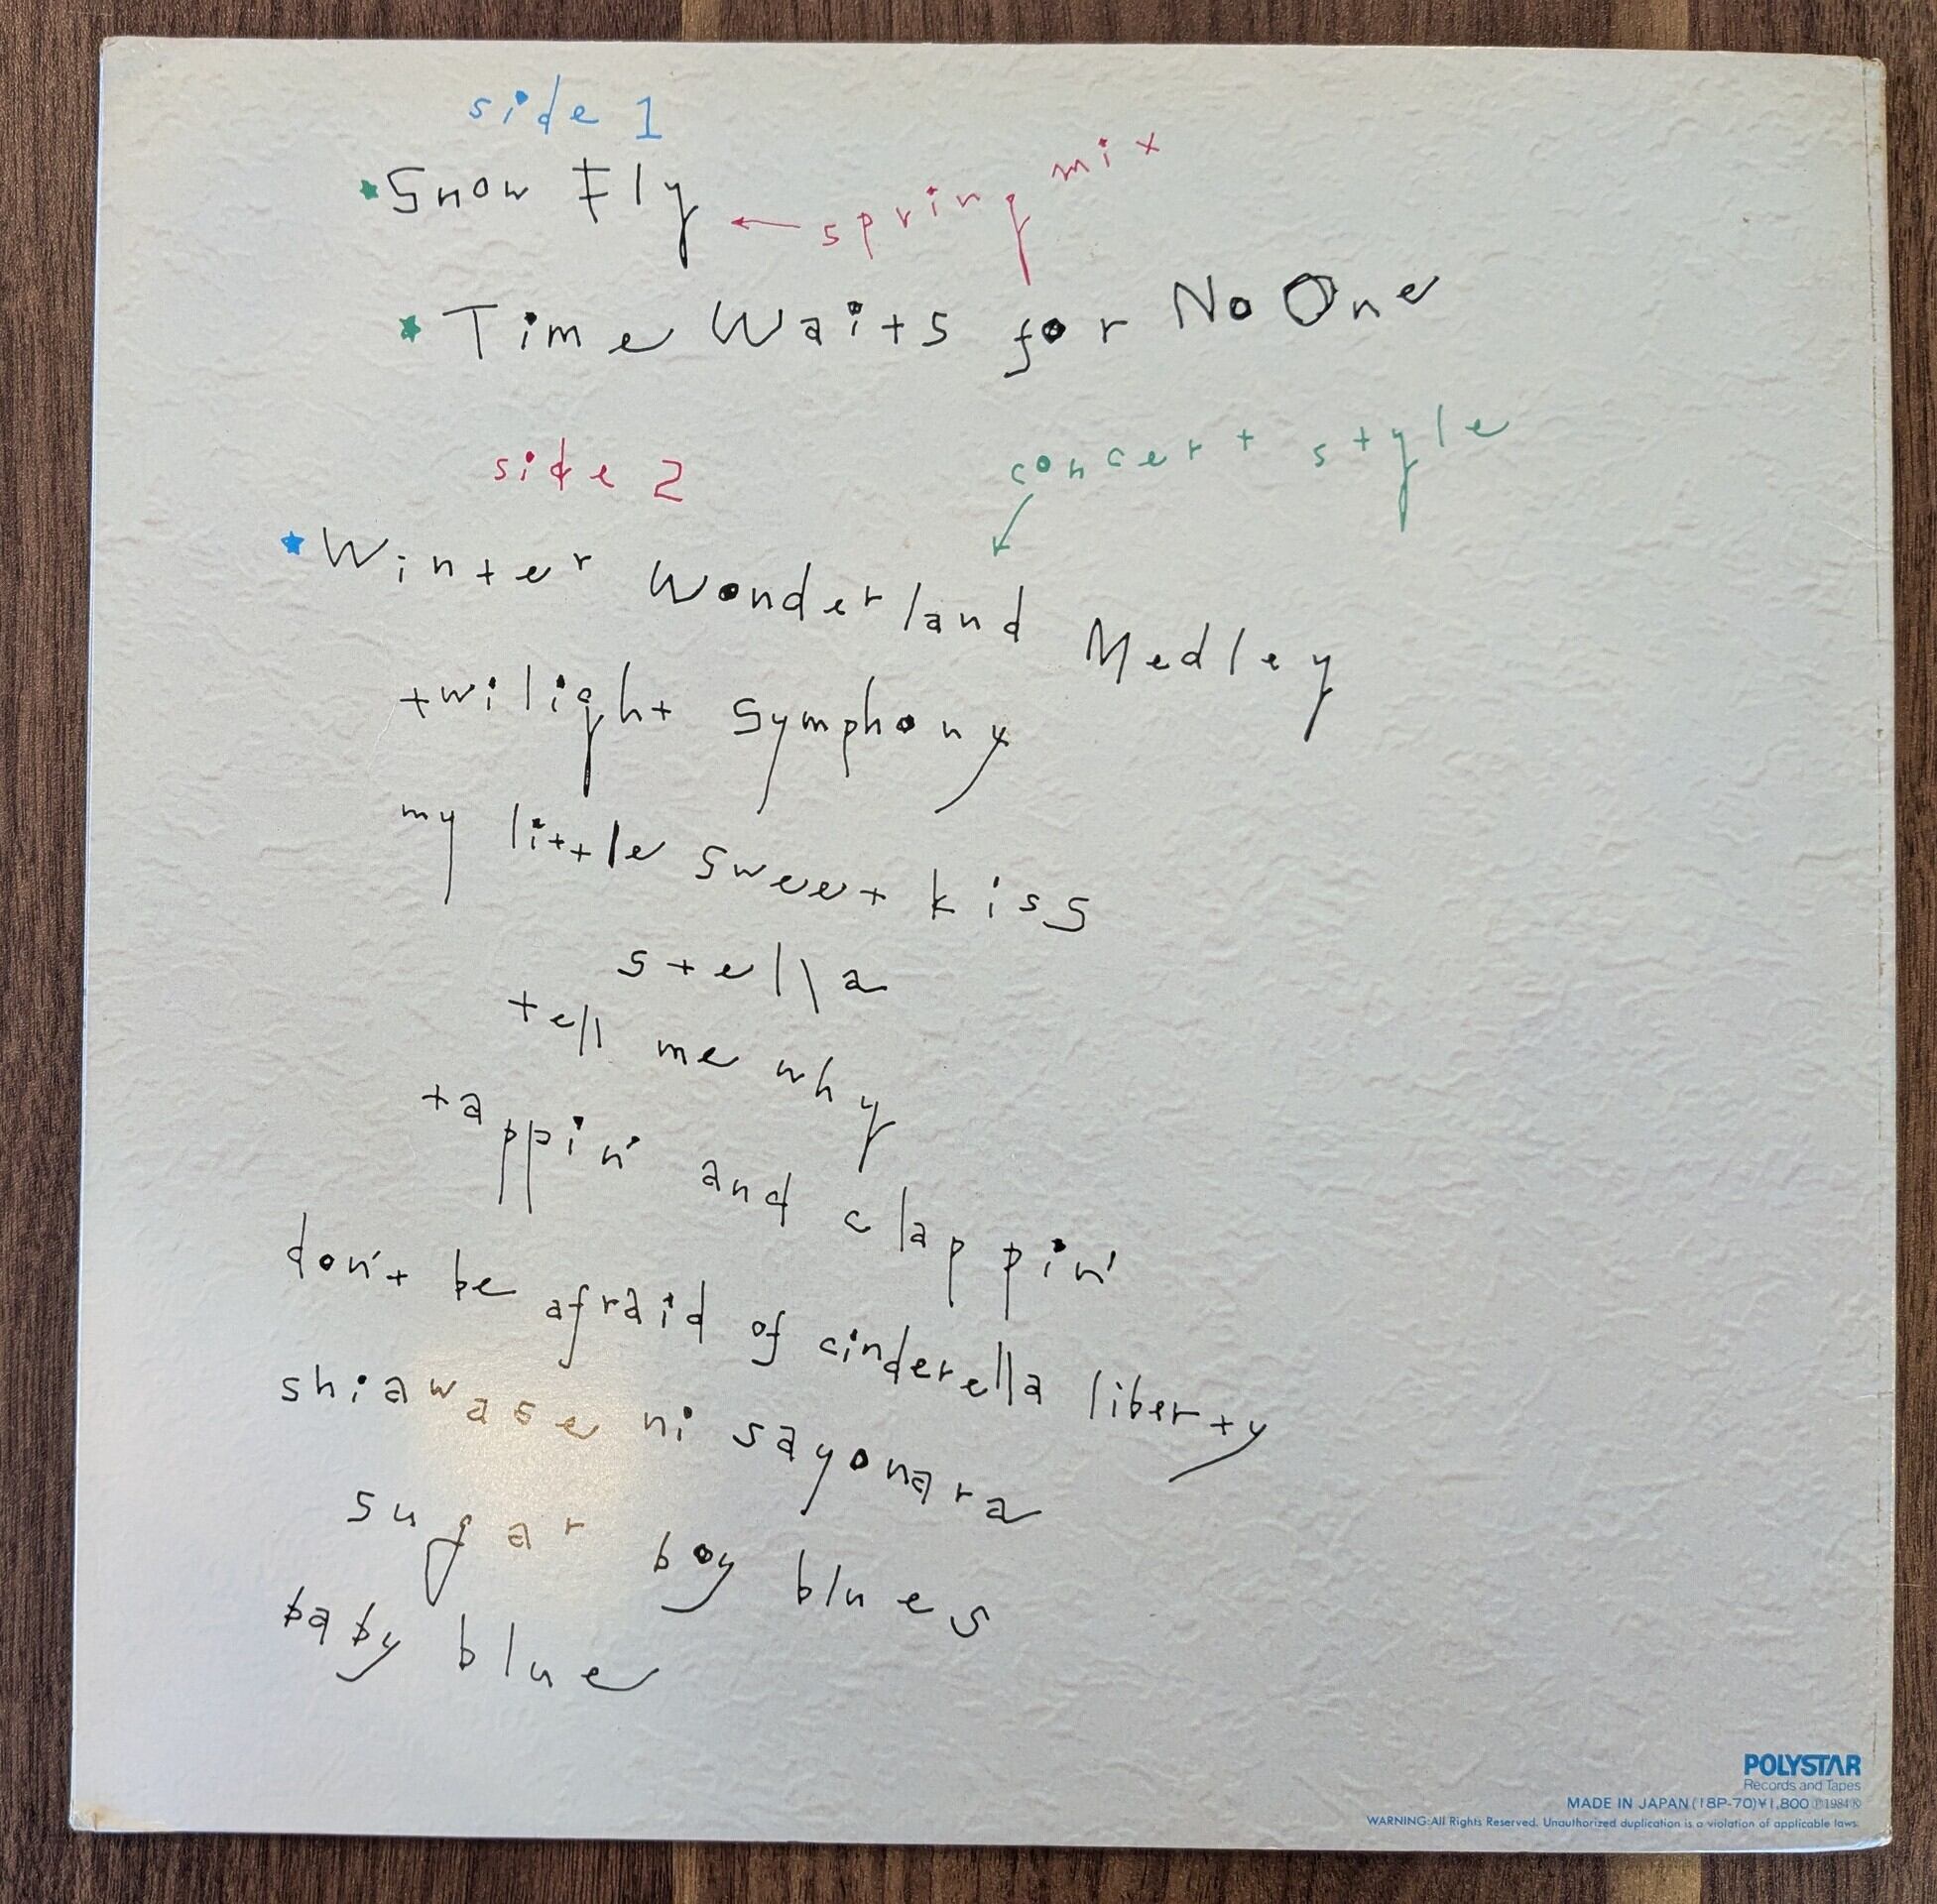 side 1
★Snow Fly ← spring mix
★Time Waits for No One
side 2
concert style
★Winter Wonderland Medley
twilight symphony
my little sweet kiss
stella
tell me why
tappin' and clappin'
don't be afraid of cinderella liberty
shiawase ni sayonara
sugar boy blues
baby blue
POLYSTAR
Records and Tapes
MADE IN JAPAN (18P-70) ¥1,800 Ⓟ1984Ⓡ
WARNING: All Rights Reserved. Unauthorized duplication is a violation of applicable laws.